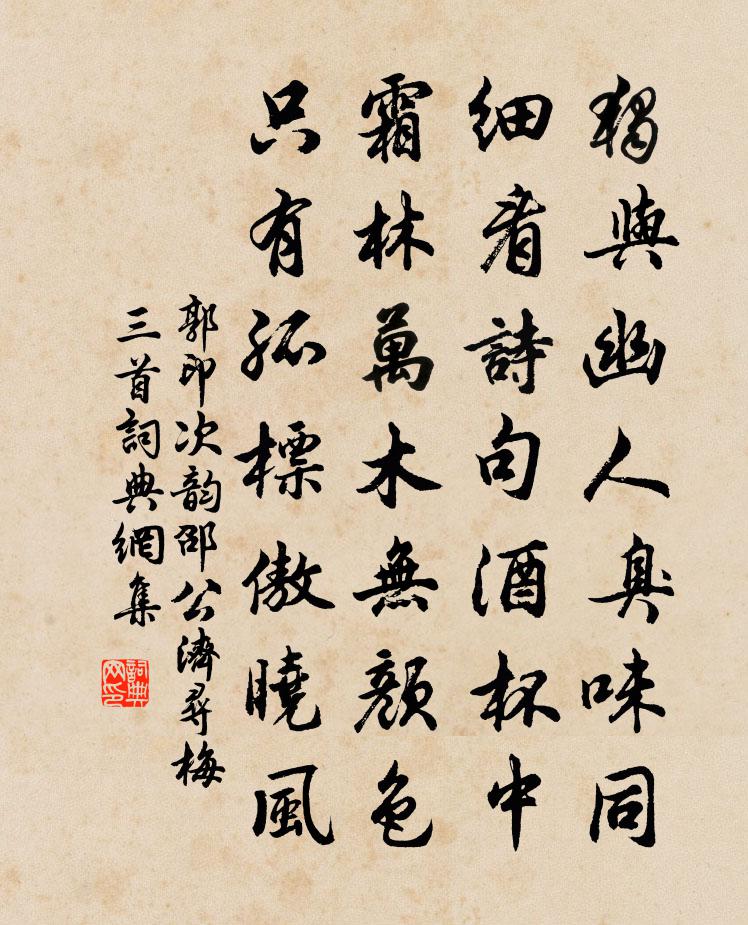 獨與幽人臭味同
細看詩句酒杯中
霜林萬木無顏色
只有孤標傲曉風
郭印次韵邵公濟尋梅
三首詞典網集
詞典网印